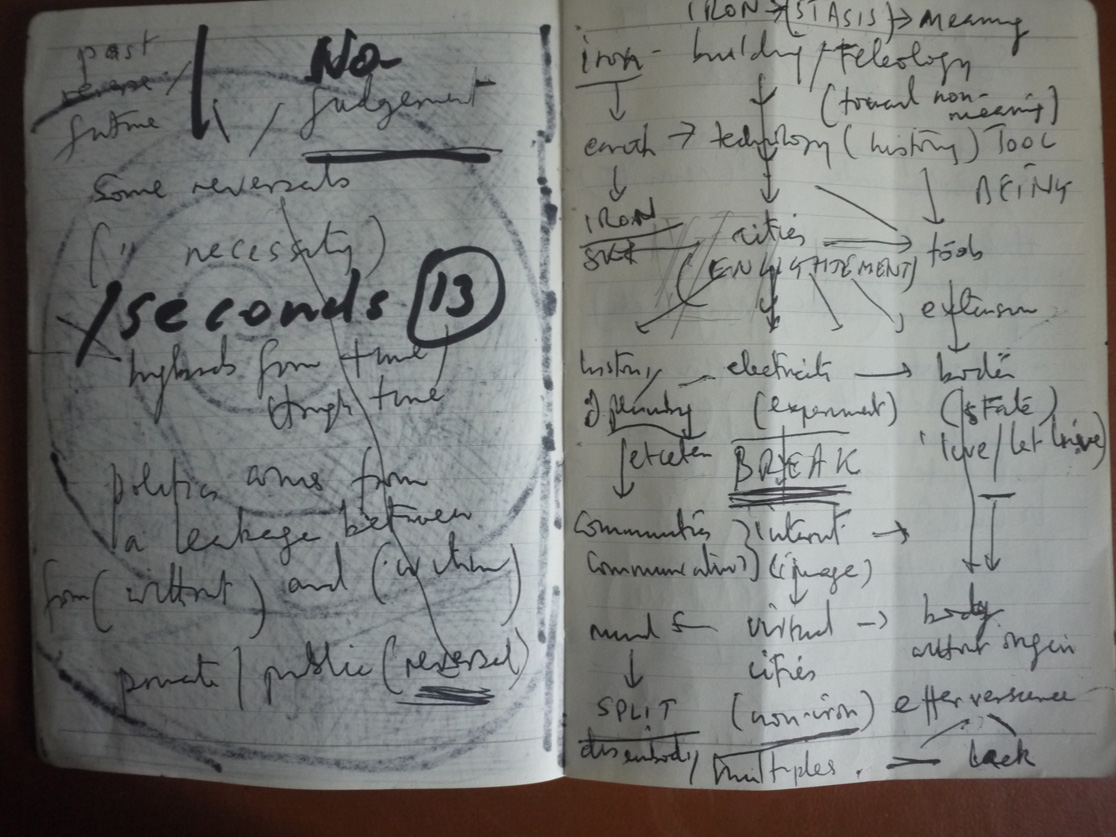 past
reverse /
future
No
judgement
Some reversals
( " necessity)
/seconds 13
hybrids from time
though time
politics comes from
a leakage between
from (without) and (within)
private / public (reversal)
IRON → (STASIS) → meaning
iron - building / teleology
(toward non-
meaning)
earth → technology (history) TOOL
BEING
IRON
cities
tools
(ENLIGHTEMENT)
extension
history electricity → bodies
of (experiment) (State)
BREAK
communities internet →
communication) (image)
mind virtual → body
without origin
cities
SPLIT (non-iron) effervescence
disembody / multiples. lack